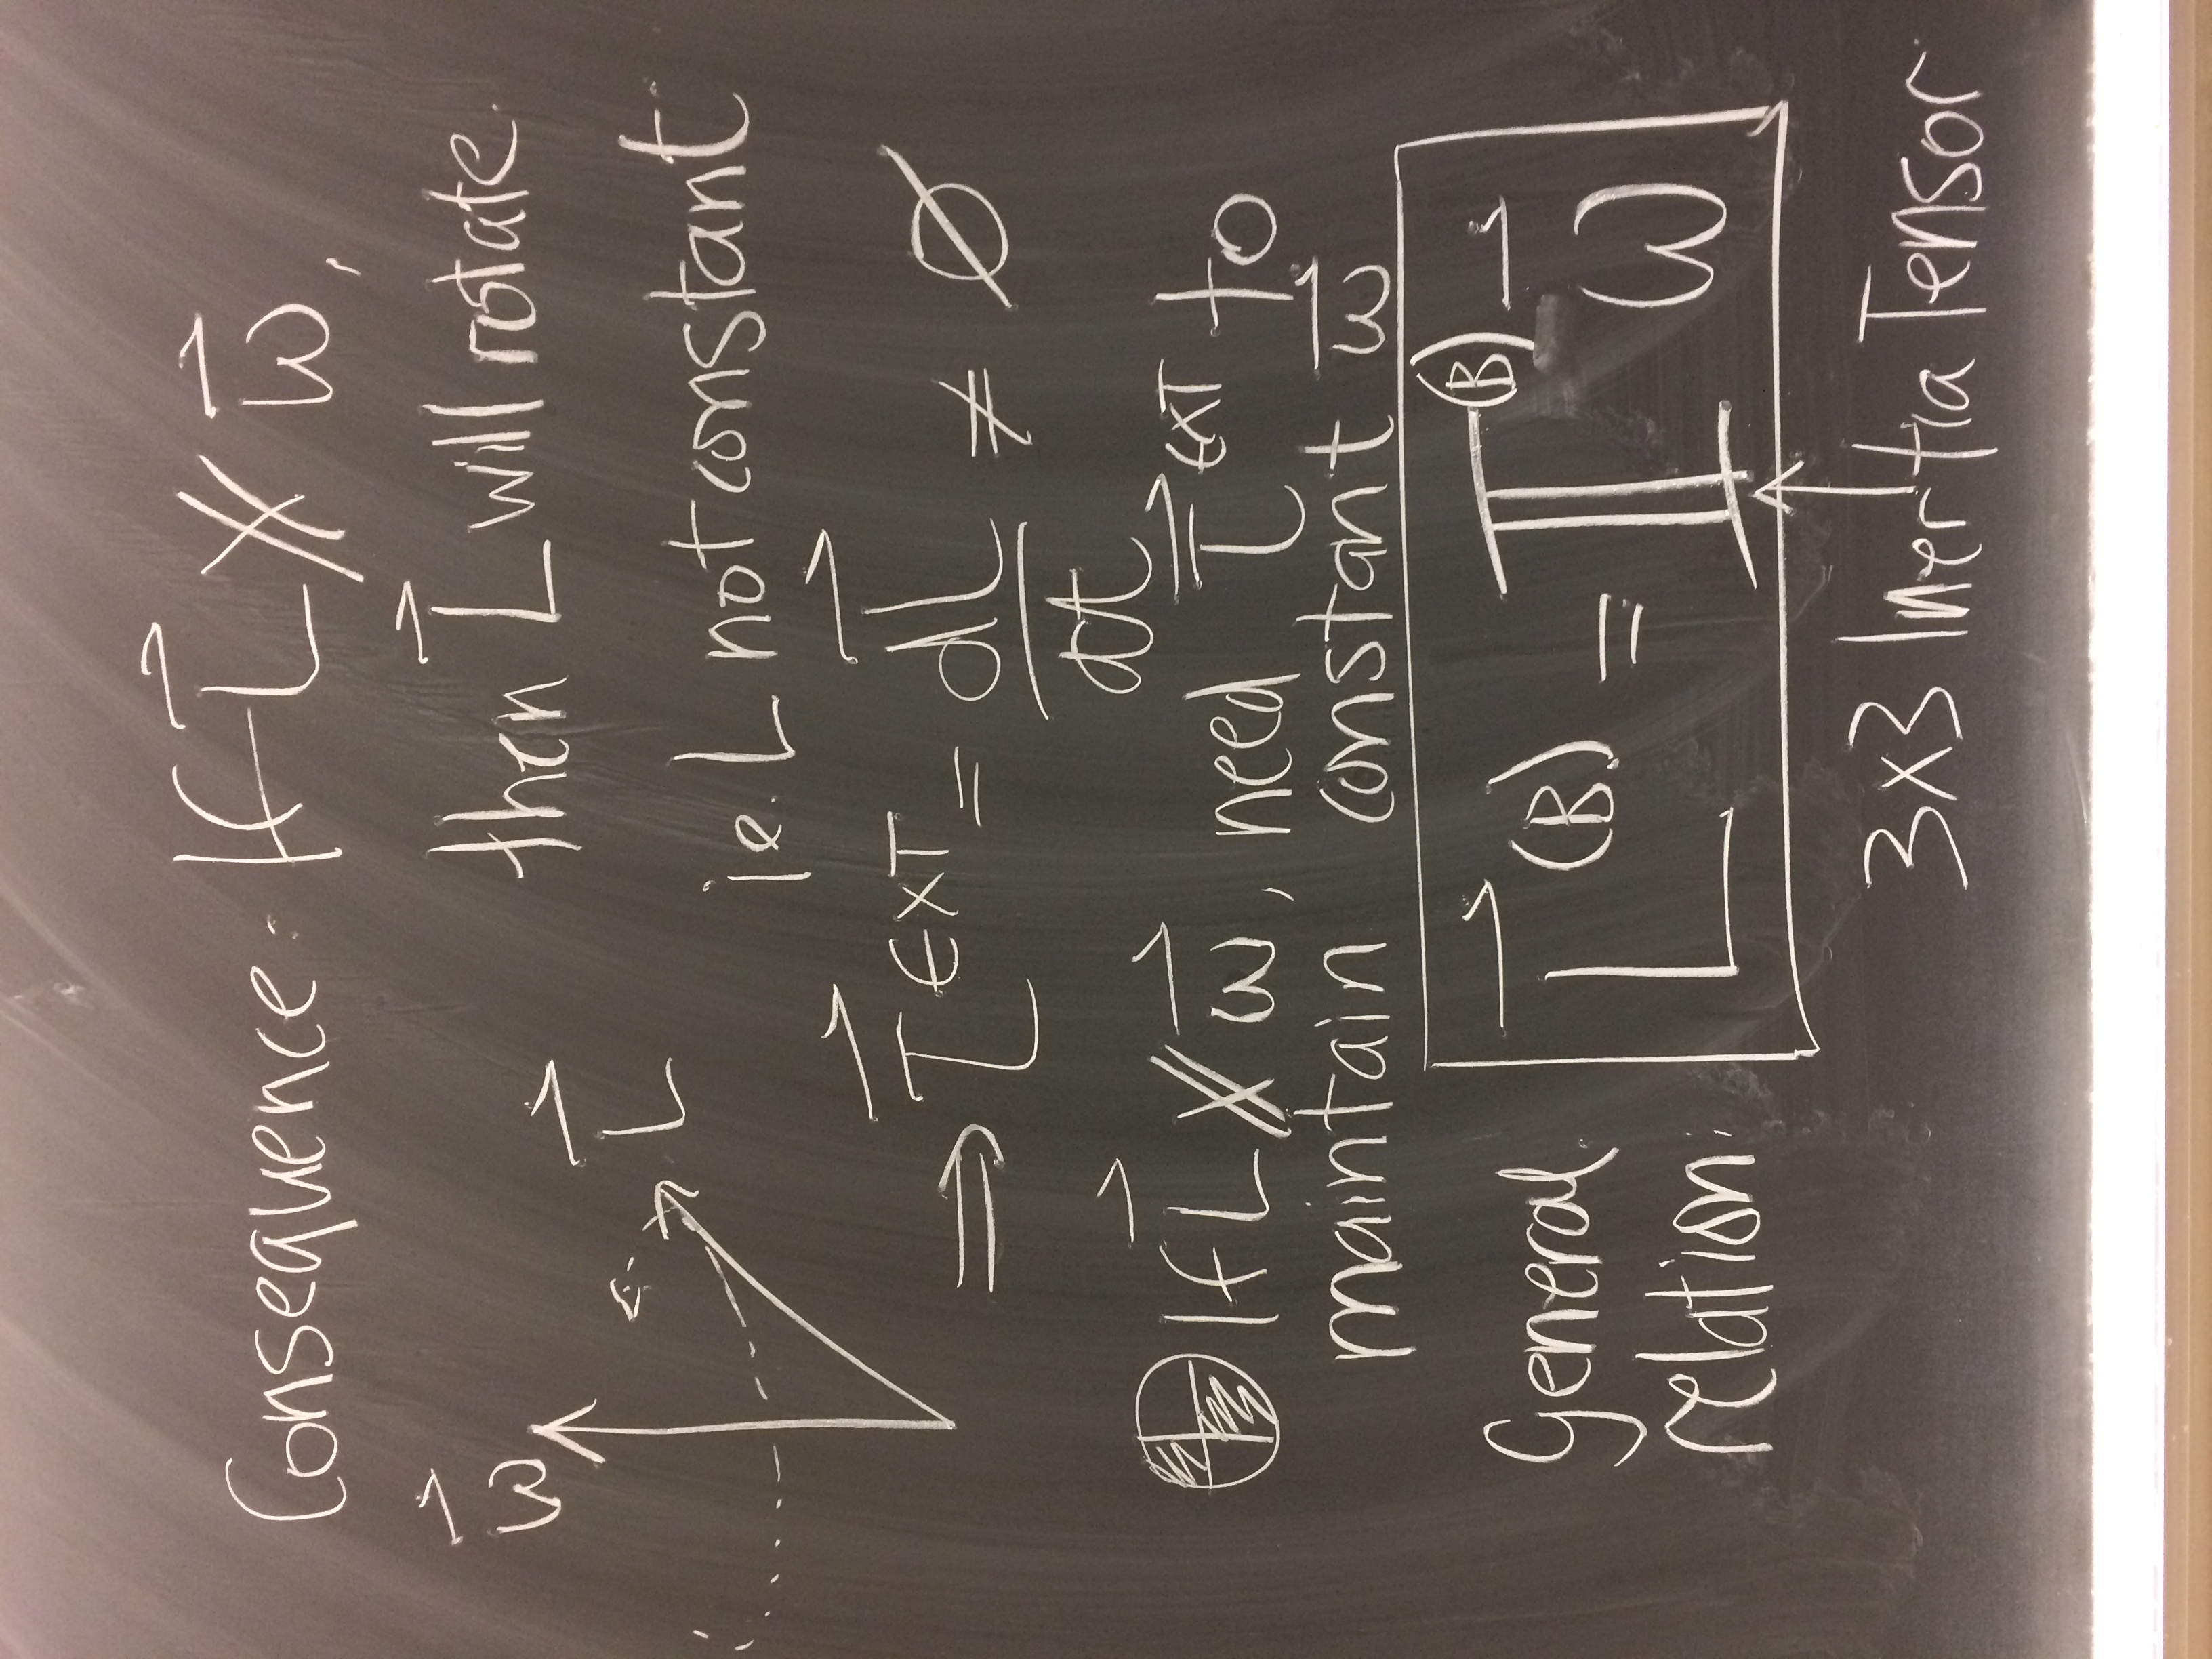 Consequence: If L⃗ ∦ ω⃗,
then L⃗ will rotate.
ie. L not constant
ω⃗ L⃗
⇒ τ⃗ᵉˣᵀ = dL⃗/dt ≠ ∅
If L⃗ ∦ ω⃗, need τ⃗ᵉˣᵀ to
maintain constant ω⃗
General relation: L⃗⁽ᴮ⁾ = 𝕀⁽ᴮ⁾ ω⃗
3x3 Inertia Tensor